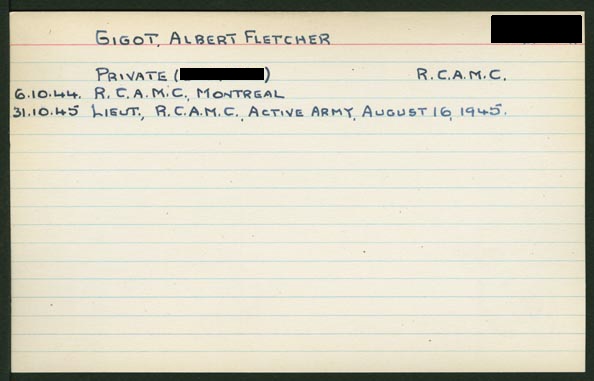 GIGOT, ALBERT FLETCHER
PRIVATE ( ) R.C.A.M.C.
6.10.44. R.C.A.M.C., MONTREAL
31.10.45 LIEUT., R.C.A.M.C., ACTIVE ARMY, AUGUST 16, 1945.